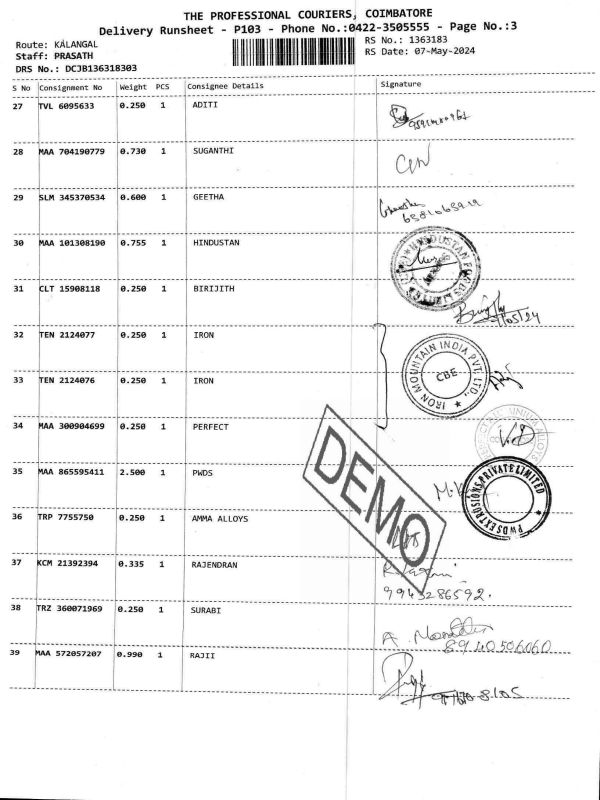 THE PROFESSIONAL COURIERS, COIMBATORE
Delivery Runsheet - P103 - Phone No.:0422-3505555 - Page No.:3
Route: KALANGAL
RS No.: 1363183
Staff: PRASATH
RS Date: 07-May-2024
DRS No.: DCJB136318303
S No Consignment No Weight PCS Consignee Details Signature
27 TVL 6095633 0.250 1 ADITI
28 MAA 704190779 0.730 1 SUGANTHI
29 SLM 345370534 0.600 1 GEETHA
30 MAA 101308190 0.755 1 HINDUSTAN
31 CLT 15908118 0.250 1 BIRIJITH
32 TEN 2124077 0.250 1 IRON
IRON MOUNTAIN INDIA PVT. LTD.,
CBE
33 TEN 2124076 0.250 1 IRON
34 MAA 300904699 0.250 1 PERFECT
35 MAA 865595411 2.500 1 PWDS
PWDS EXTRUSIONS PRIVATE LIMITED
DEMO
36 TRP 7755750 0.250 1 AMMA ALLOYS
37 KCM 21392394 0.335 1 RAJENDRAN
9943286592.
38 TRZ 360071969 0.250 1 SURABI
8940506060
39 MAA 572057207 0.990 1 RAJII